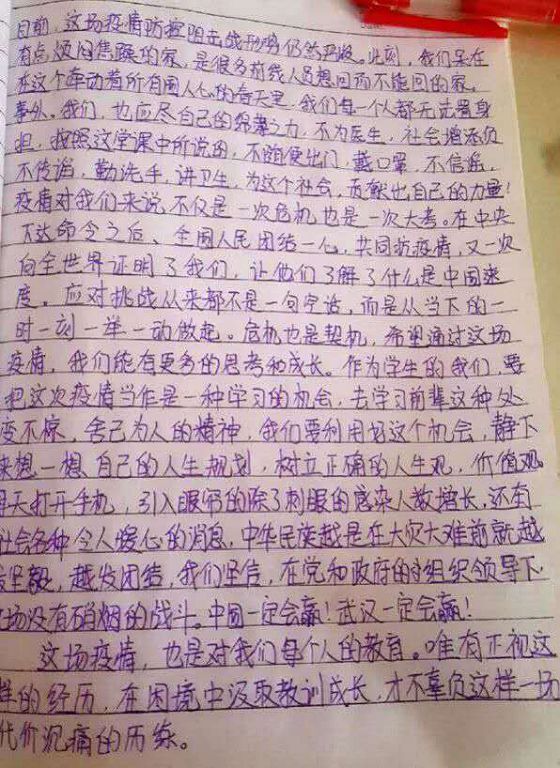 目前，这场疫情防控阻击战形势仍然严峻。此刻，我们呆在
有点烦闷焦躁的家，是很多前线人员想回而不能回的家。
在这个牵动着所有国人心的春天里，我们每一个人都无法置身
事外。我们，也应尽自己的绵薄之力，不为医生，社会增添负
担，按照这堂课中所说的，不随便出门，戴口罩，不信谣，
不传谣，勤洗手，讲卫生，为这个社会，贡献出自己的力量！
疫情对我们来说，不仅是一次危机，也是一次大考。在中央
下达命令之后、全国人民团结一心，共同抗疫情，又一次
向全世界证明了我们，让他们了解了什么是中国速
度。应对挑战从来都不是一句空话，而是从当下的一
时一刻一举一动做起。危机也是契机，希望通过这场
疫情，我们能有更多的思考和成长。作为学生的我们，要
把这次疫情当作是一种学习的机会，去学习前辈这种处
变不惊，舍己为人的精神，我们要利用好这个机会，静下
来想一想自己的人生规划，树立正确的人生观，价值观
每天打开手机，引入眼帘的除了刺眼的感染人数增长，还有
社会各种令人暖心的消息，中华民族越是在大灾大难前就越
发坚毅，越发团结，我们坚信，在党和政府的组织领导下
这场没有硝烟的战斗。中国一定会赢！武汉一定会赢！
这场疫情，也是对我们每个人的教育。唯有正视这
样的经历，在困境中汲取教训成长，才不辜负这样一场
代价沉痛的历练。